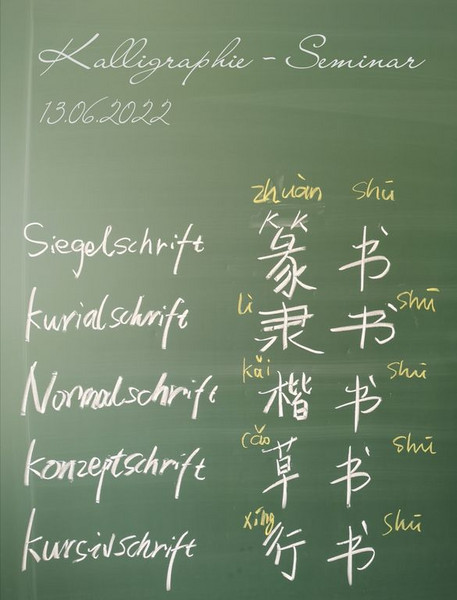 Kalligraphie - Seminar
13.06.2022
zhuàn shū
Siegelschrift 篆书
lì shū
Kurialschrift 隶书
kǎi shū
Normalschrift 楷书
cǎo shū
Konzeptschrift 草书
xíng shū
Kursivschrift 行书